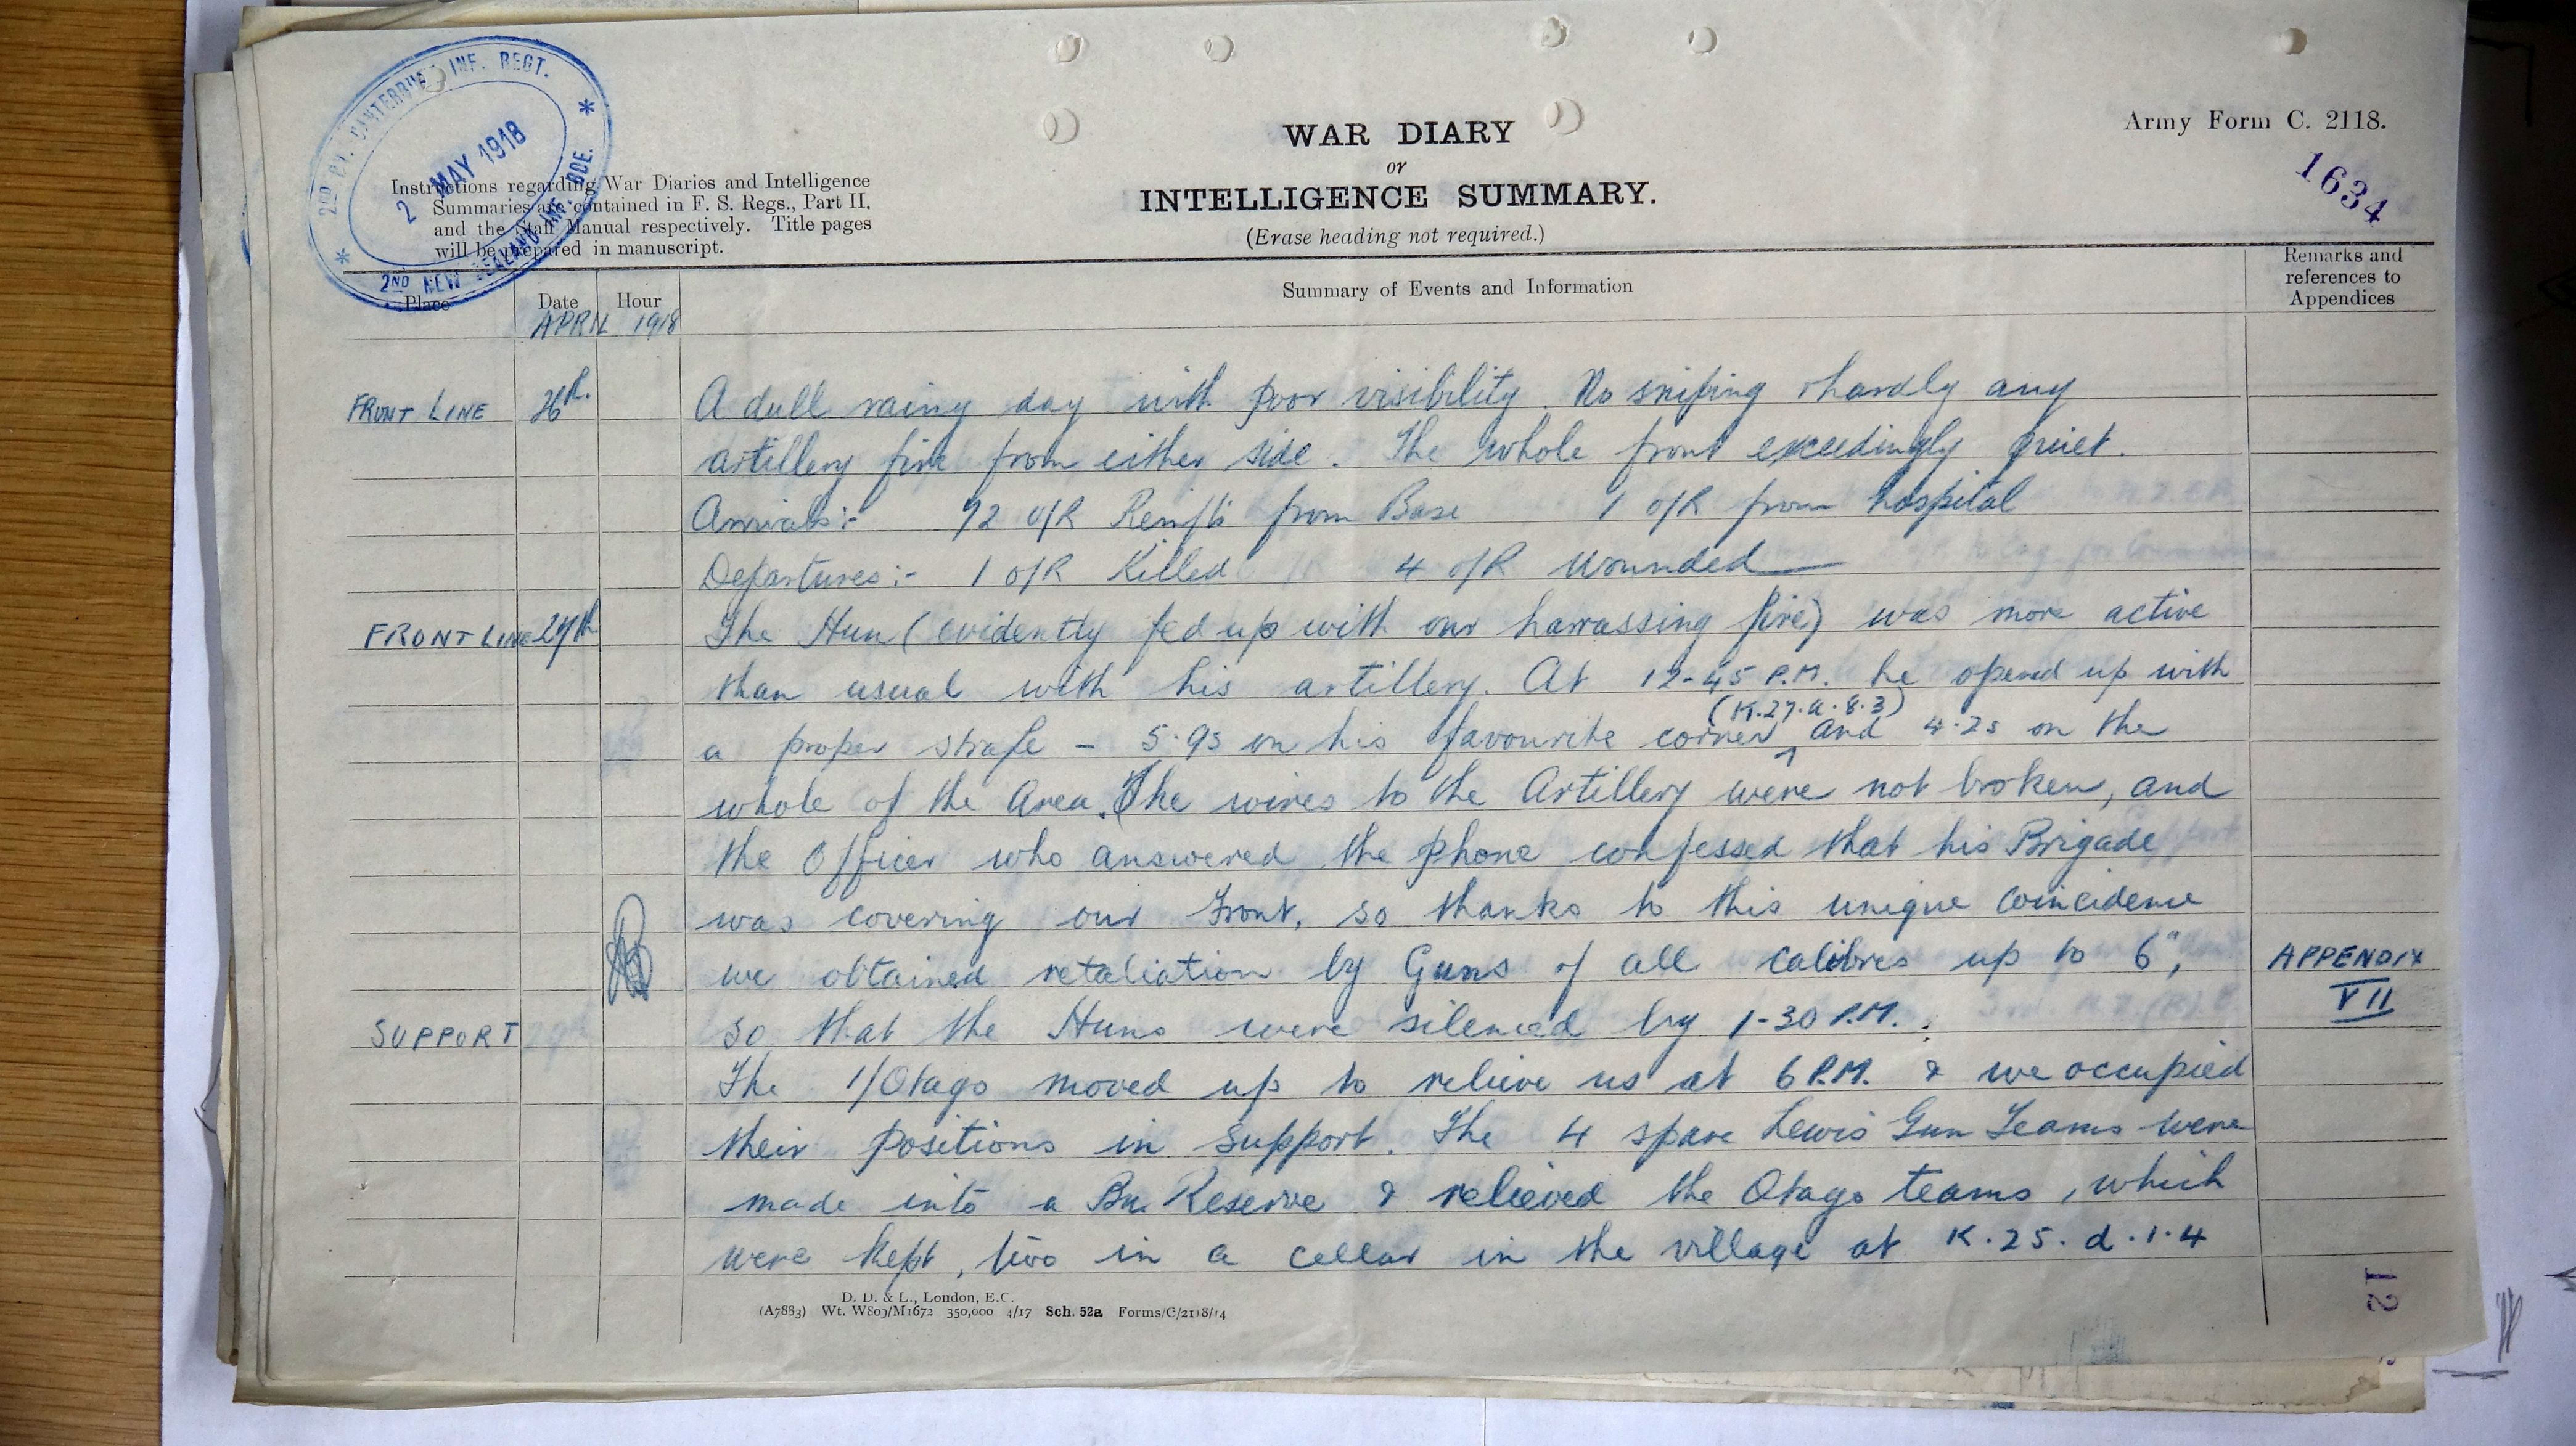 2ND BN. CANTERBURY INF. REGT.
2 MAY 1918
2ND NEW ZEALAND INF. BDE.
Instructions regarding War Diaries and Intelligence
Summaries are contained in F. S. Regs., Part II.
and the Staff Manual respectively. Title pages
will be prepared in manuscript.
WAR DIARY
or
INTELLIGENCE SUMMARY.
(Erase heading not required.)
Army Form C. 2118.
1634
Place
Date
Hour
Summary of Events and Information
Remarks and
references to
Appendices
APRIL 1918
FRONT LINE 26th. A dull rainy day with poor visibility. No sniping & hardly any
artillery fire from either side. The whole front exceedingly quiet.
Arrivals:- 92 O/R Reinfts from Base 1 O/R from hospital
Departures:- 1 O/R Killed 4 O/R Wounded
FRONT LINE 27th The Hun (evidently fed up with our harrassing fire) was more active
than usual with his artillery. At 12-45 P.M. he opened up with
(K.27.a.8.3)
a proper strafe - 5.9s on his favourite corner and 4.2s on the
whole of the Area. The wires to the Artillery were not broken, and
the Officer who answered the phone confessed that his Brigade
was covering our Front, so thanks to this unique coincidence
we obtained retaliation by Guns of all calibres up to 6", APPENDIX
VII
SUPPORT so that the Huns were silenced by 1-30 P.M.
The 1/Otago moved up to relieve us at 6 P.M. & we occupied
their positions in Support. The 4 spare Lewis Gun Teams were
made into a Bn. Reserve & relieved the Otago teams, which
were kept, two in a cellar in the village at K.25.d.1.4
D. D. & L., London, E.C.
(A7883) Wt. W809/M1672 350,000 4/17 Sch. 52a Forms/C/2118/14
12